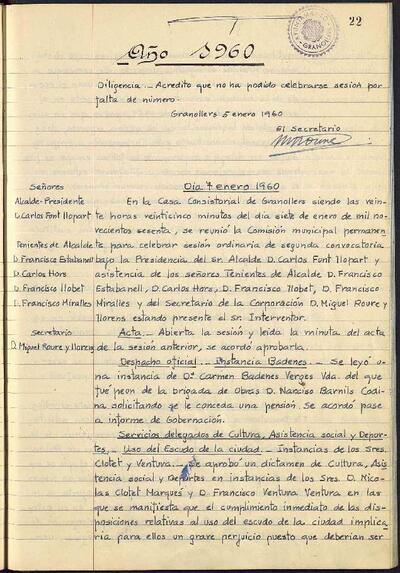 22
AYUNTAMIENTO GRANOLLERS
Año 1960
Diligencia.- Acredito que no ha podido celebrarse sesion por
falta de número.
Granollers 5 enero 1960
El Secretario
Señores
Dia 7 enero 1960
Alcalde-Presidente
En la Casa Consistorial de Granollers siendo las vein-
D. Carlos Font Llopart
te horas veinticinco minutos del dia siete de enero de mil no-
vecientos sesenta, se reunió la Comisión municipal permanen-
Tenientes de Alcalde
te, para celebrar sesión ordinaria de segunda convocatoria
D. Francisco Estabanell
bajo la Presidencia del Sr. Alcalde D. Carlos Font Llopart y
D. Carlos Hors
asistencia de los señores Tenientes de Alcalde D. Francisco
D. Francisco Llobet
Estabanell, D. Carlos Hors, D. Francisco Llobet, D. Francisco
D. Francisco Miralles
Miralles y del Secretario de la Corporación D. Miguel Roure y
Llorens estando presente el Sr. Interventor.
Secretario
Acta.- Abierta la sesión y leida la minuta del acta
D. Miguel Roure y Llorens
de la sesión anterior, se acordó aprobarla.
Despacho oficial.- Instancia Badenes.- Se leyó u-
na instancia de Dª Carmen Badenes Verges Vda. del que
fué peon de la brigada de Obras D. Narciso Barnils Codi-
na solicitando se le conceda una pensión. Se acordó pase
a informe de Gobernación.
Servicios delegados de Cultura, Asistencia social y Depor-
tes.- Uso del Escudo de la ciudad.- Instancias de los Sres.
Clotet y Ventura.- Se aprobó un dictamen de Cultura, Asis
tencia social y Deportes en instancias de los Sres. D. Nico-
las Clotet Marques y D. Francisco Ventura Ventura en las
que se manifiesta que el cumplimiento inmediato de las dis-
posiciones relativas al uso del escudo de la ciudad implica-
ria para ellos un grave perjuicio puesto que deberian ser